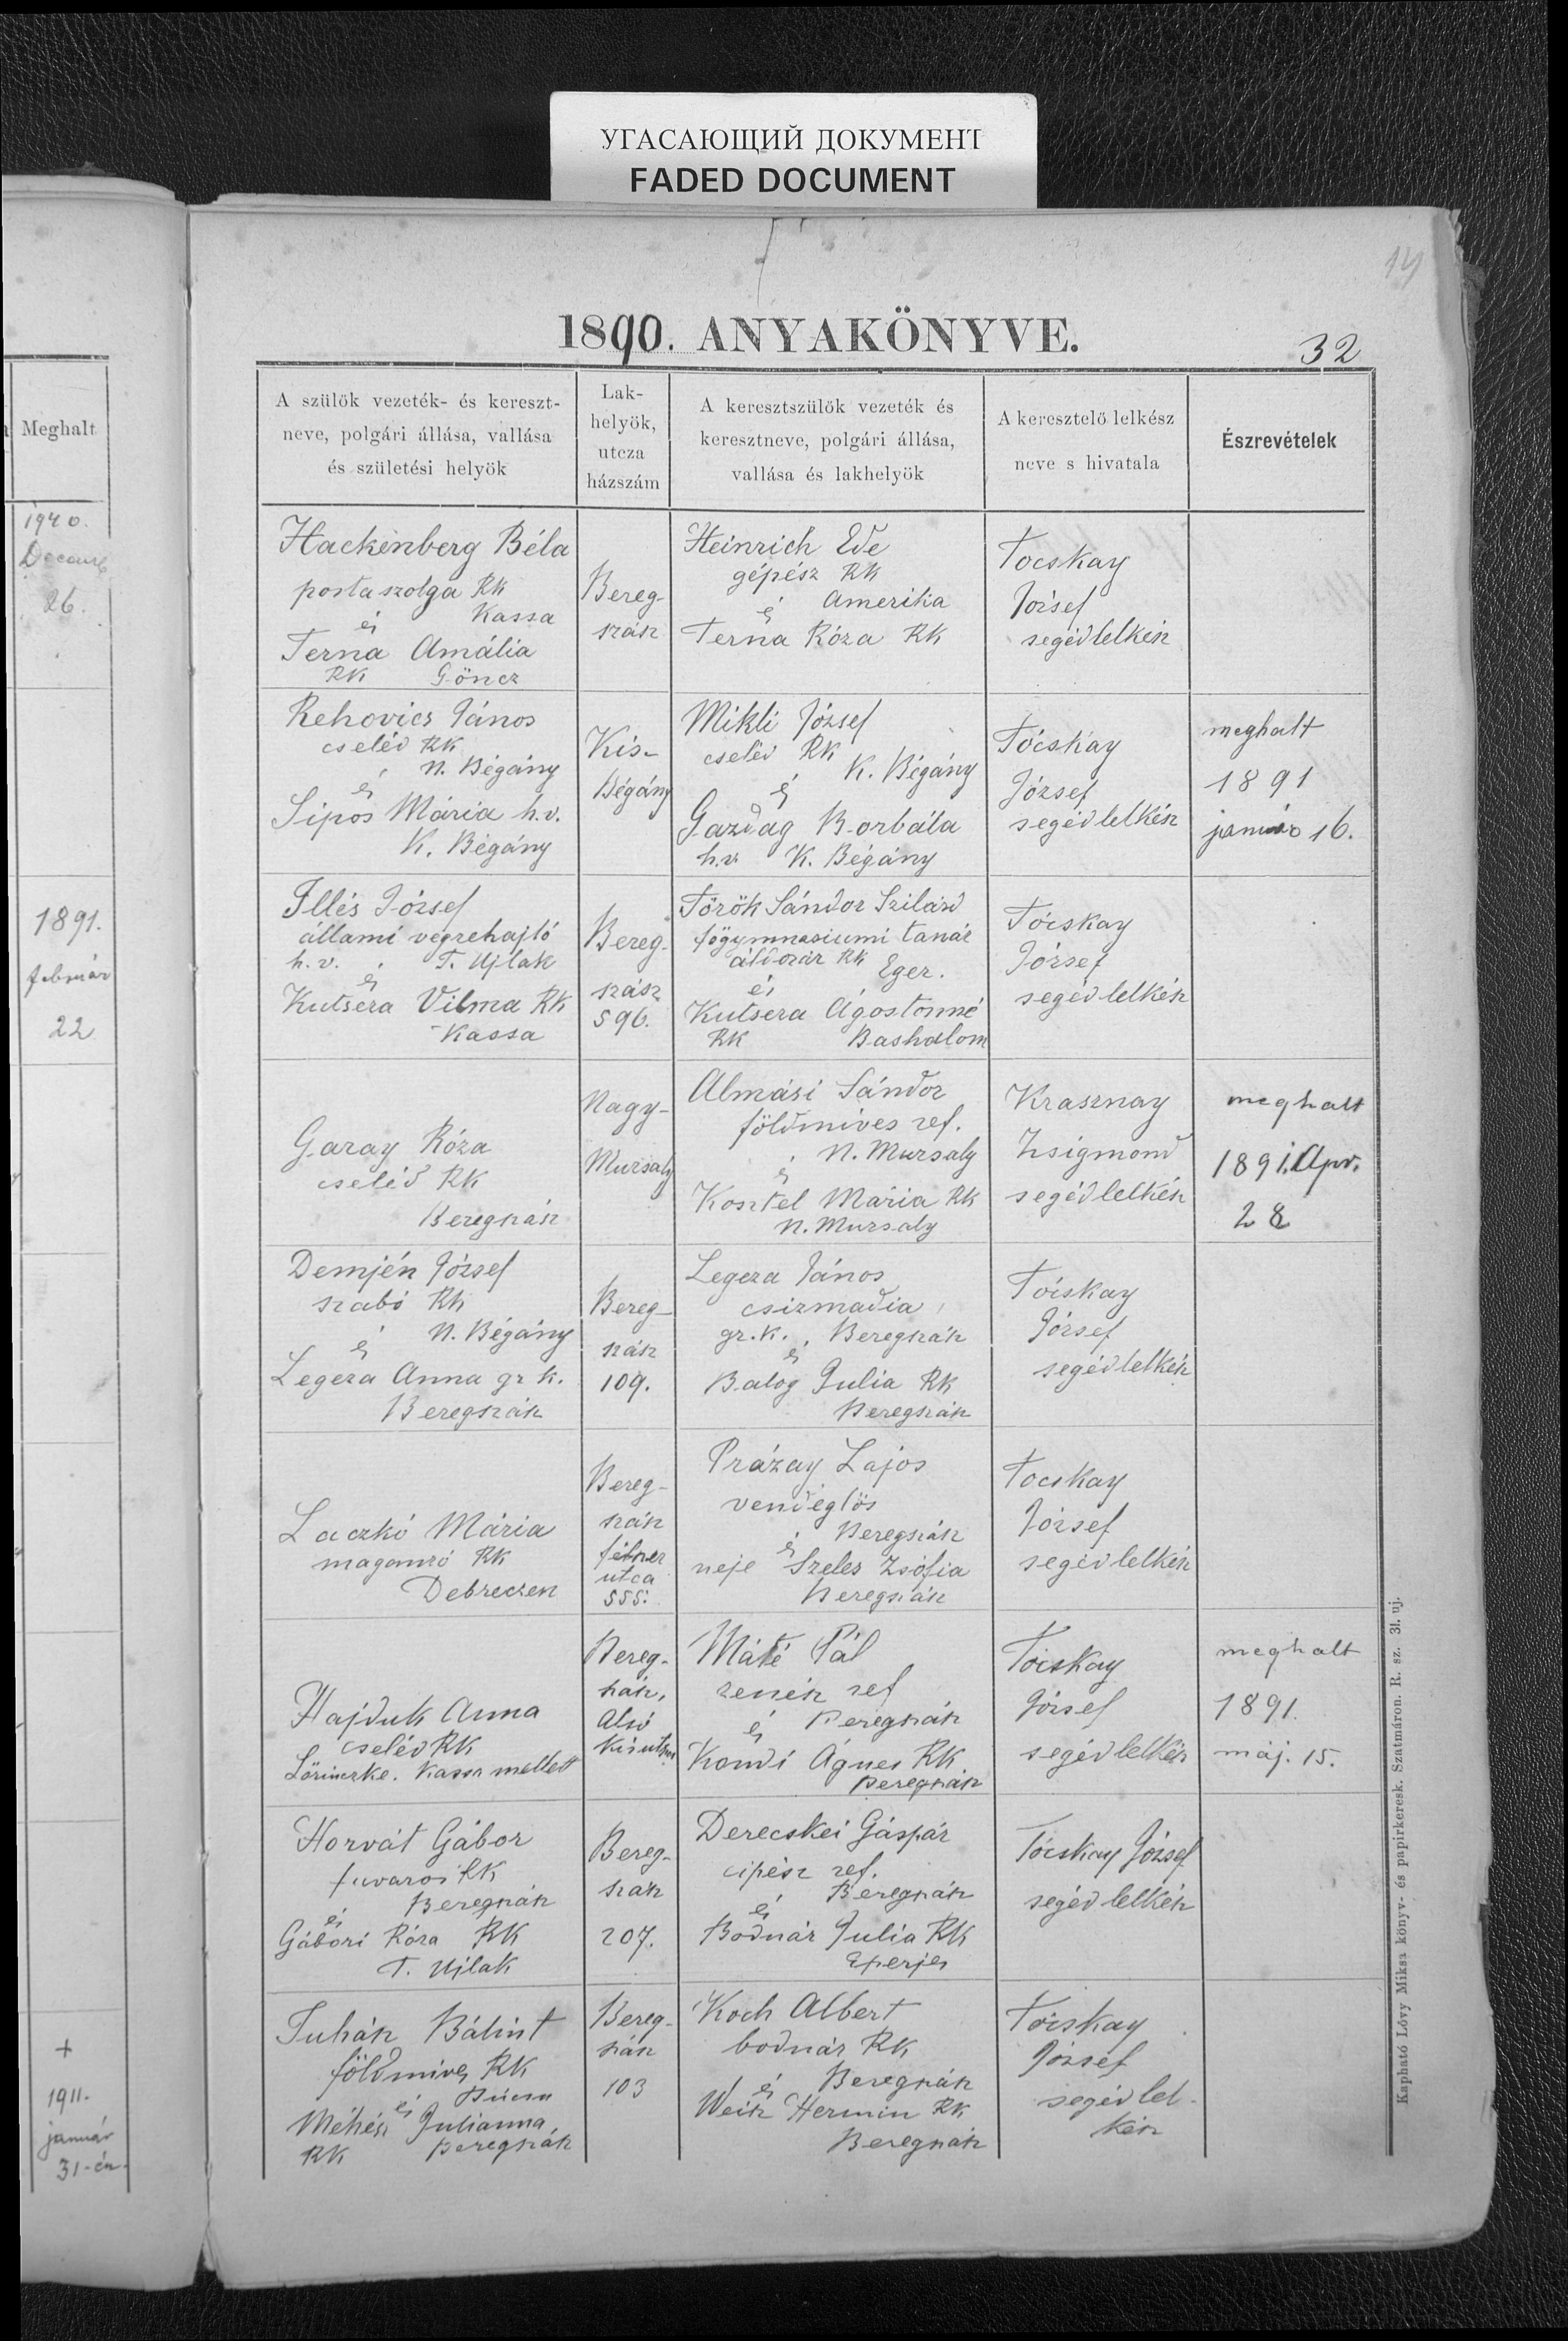 УГАСАЮЩИЙ ДОКУМЕНТ
FADED DOCUMENT
14
1890. ANYAKÖNYVE.
32
Meghalt
1940.
26.
1891.
február
22
+
1911.
január
31-én.
A szülök vezeték- és kereszt-
neve, polgári állása, vallása
és születési helyök
Lak-
helyök,
utcza
házszám
A keresztszülök vezeték és
keresztneve, polgári állása,
vallása és lakhelyök
A keresztelö lelkész
neve s hivatala
Észrevételek
Hackenberg Béla
postaszolga RK
és Kassa
Terna Amália
RK Göncz
Bereg-
szász
Heinrich Ede
gépész RK
és Amerika
Terna Róza RK
Tocskay
József
segédlelkész
Rehovics János
cseléd RK
N. Bégány
és
Sipos Mária h.v.
K. Bégány
Kis-
Bégány
Mikli József
cseléd RK
K. Bégány
és
Gazdag Borbála
h.v. K. Bégány
Tócskay
József
segédlelkész
meghalt
1891
január 16.
Illés József
állami végrehajtó
h.v. T. Ujlak
és
Kutsera Vilma RK
Kassa
Bereg-
szász
596.
Török Sándor Szilárd
főgymnasiumi tanár
áldozár RK Eger.
és
Kutsera Ágostonné
RK Bashalom
Tócskay
József
segédlelkész
Garay Róza
cseléd RK
Beregszász
Nagy-
Muzsaly
Almási Sándor
földmives ref.
N. Muzsaly
és
Kosztel Mária RK
N. Muzsaly
Krasznay
Zsigmond
segédlelkész
meghalt
1891. Apr.
28
Demjén József
szabó RK
N. Bégány
és
Legeza Anna gr k.
Beregszász
Bereg-
szász
109.
Legeza János
csizmadia
gr.k. Beregszász
és
Balog Julia RK
Beregszász
Tócskay
József
segédlelkész
Laczkó Mária
maganzó RK
Debreczen
Bereg-
szász
utca
555.
Prázay Lajos
vendéglős
Beregszász
és
neje Szeles Zsófia
Beregszász
Tocskay
József
segédlelkész
Hajduk Anna
cseléd RK
Lörinczke. Kassa mellett
Bereg-
szász,
Alsó
Máté Pál
zenész ref
Beregszász
és
Kondi Ágnes RK
Beregszász
Tócskay
József
segédlelkész
meghalt
1891.
máj. 15.
Horvát Gábor
fuvaros RK
Beregszász
és
Gábori Róza RK
T. Ujlak
Bereg-
szász
207.
Derecskei Gáspár
cipész ref.
Beregszász
és
Bodnár Julia RK
Eperjes
Tócskay József
segédlelkész
Juhász Bálint
földmives RK
és Búcsu
Méhész Julianna
RK Beregszász
Bereg-
szász
103
Koch Albert
bodnár RK
és Beregszász
Weisz Hermin RK
Beregszász
Tócskay
József
segédlel-
kész
Kapható Lövy Miksa könyv- és papirkeresk. Szatmáron. R. sz. 31. uj.